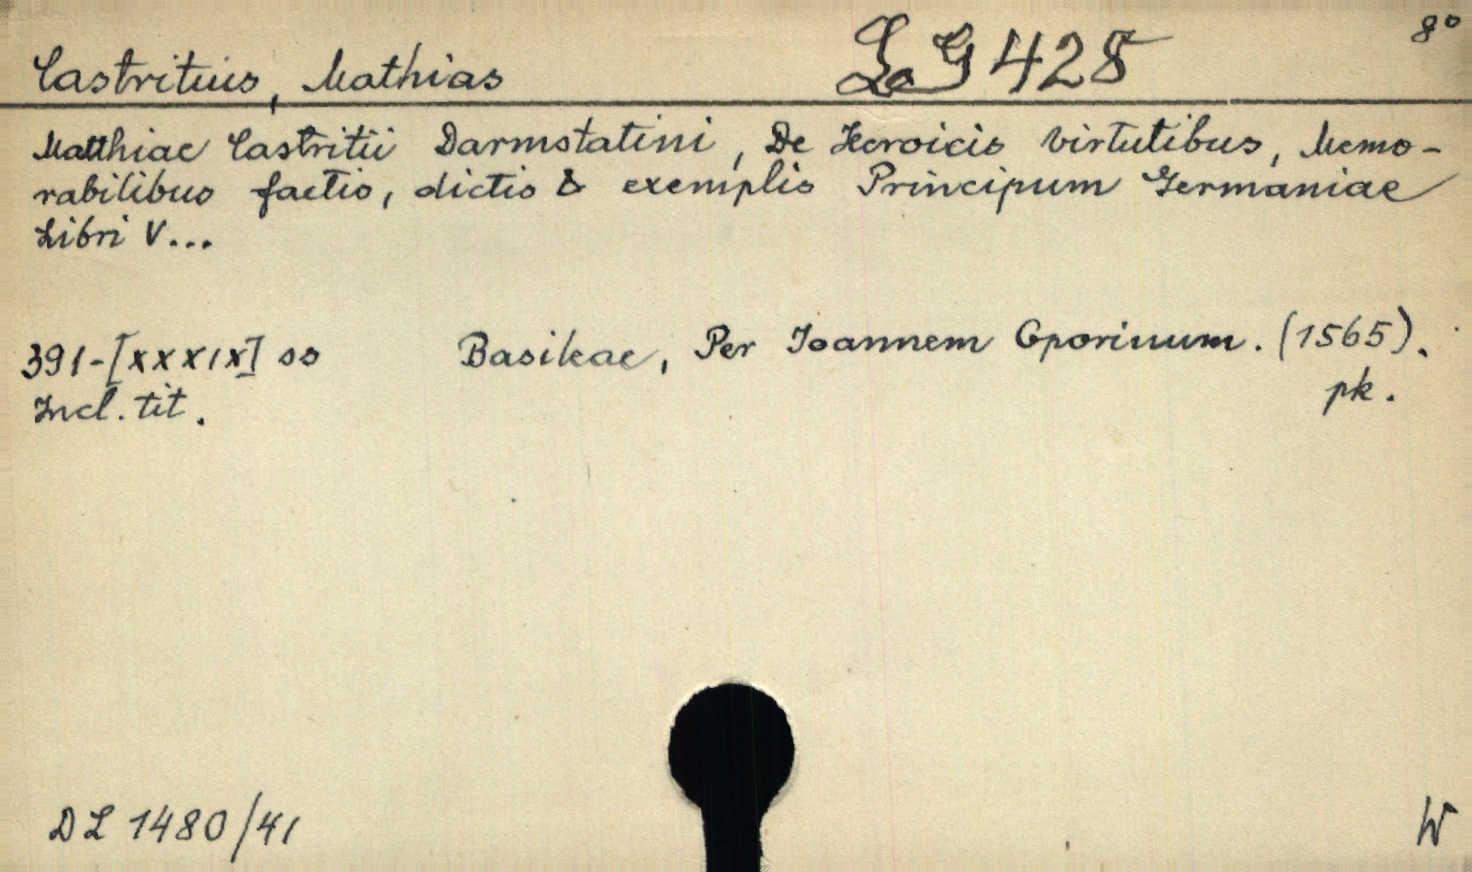 Castritius, Mathias
La G 428
8°
Matthiae Castritii Darmstatini, De Heroicis virtutibus, Memo-
rabilibus factis, dictis & exemplis Principum Germaniae
Libri V...
391-[XXXIX] ss Basileae, Per Ioannem Oporinum. (1565).
Incl. tit. pk.
DL 1480/41
W